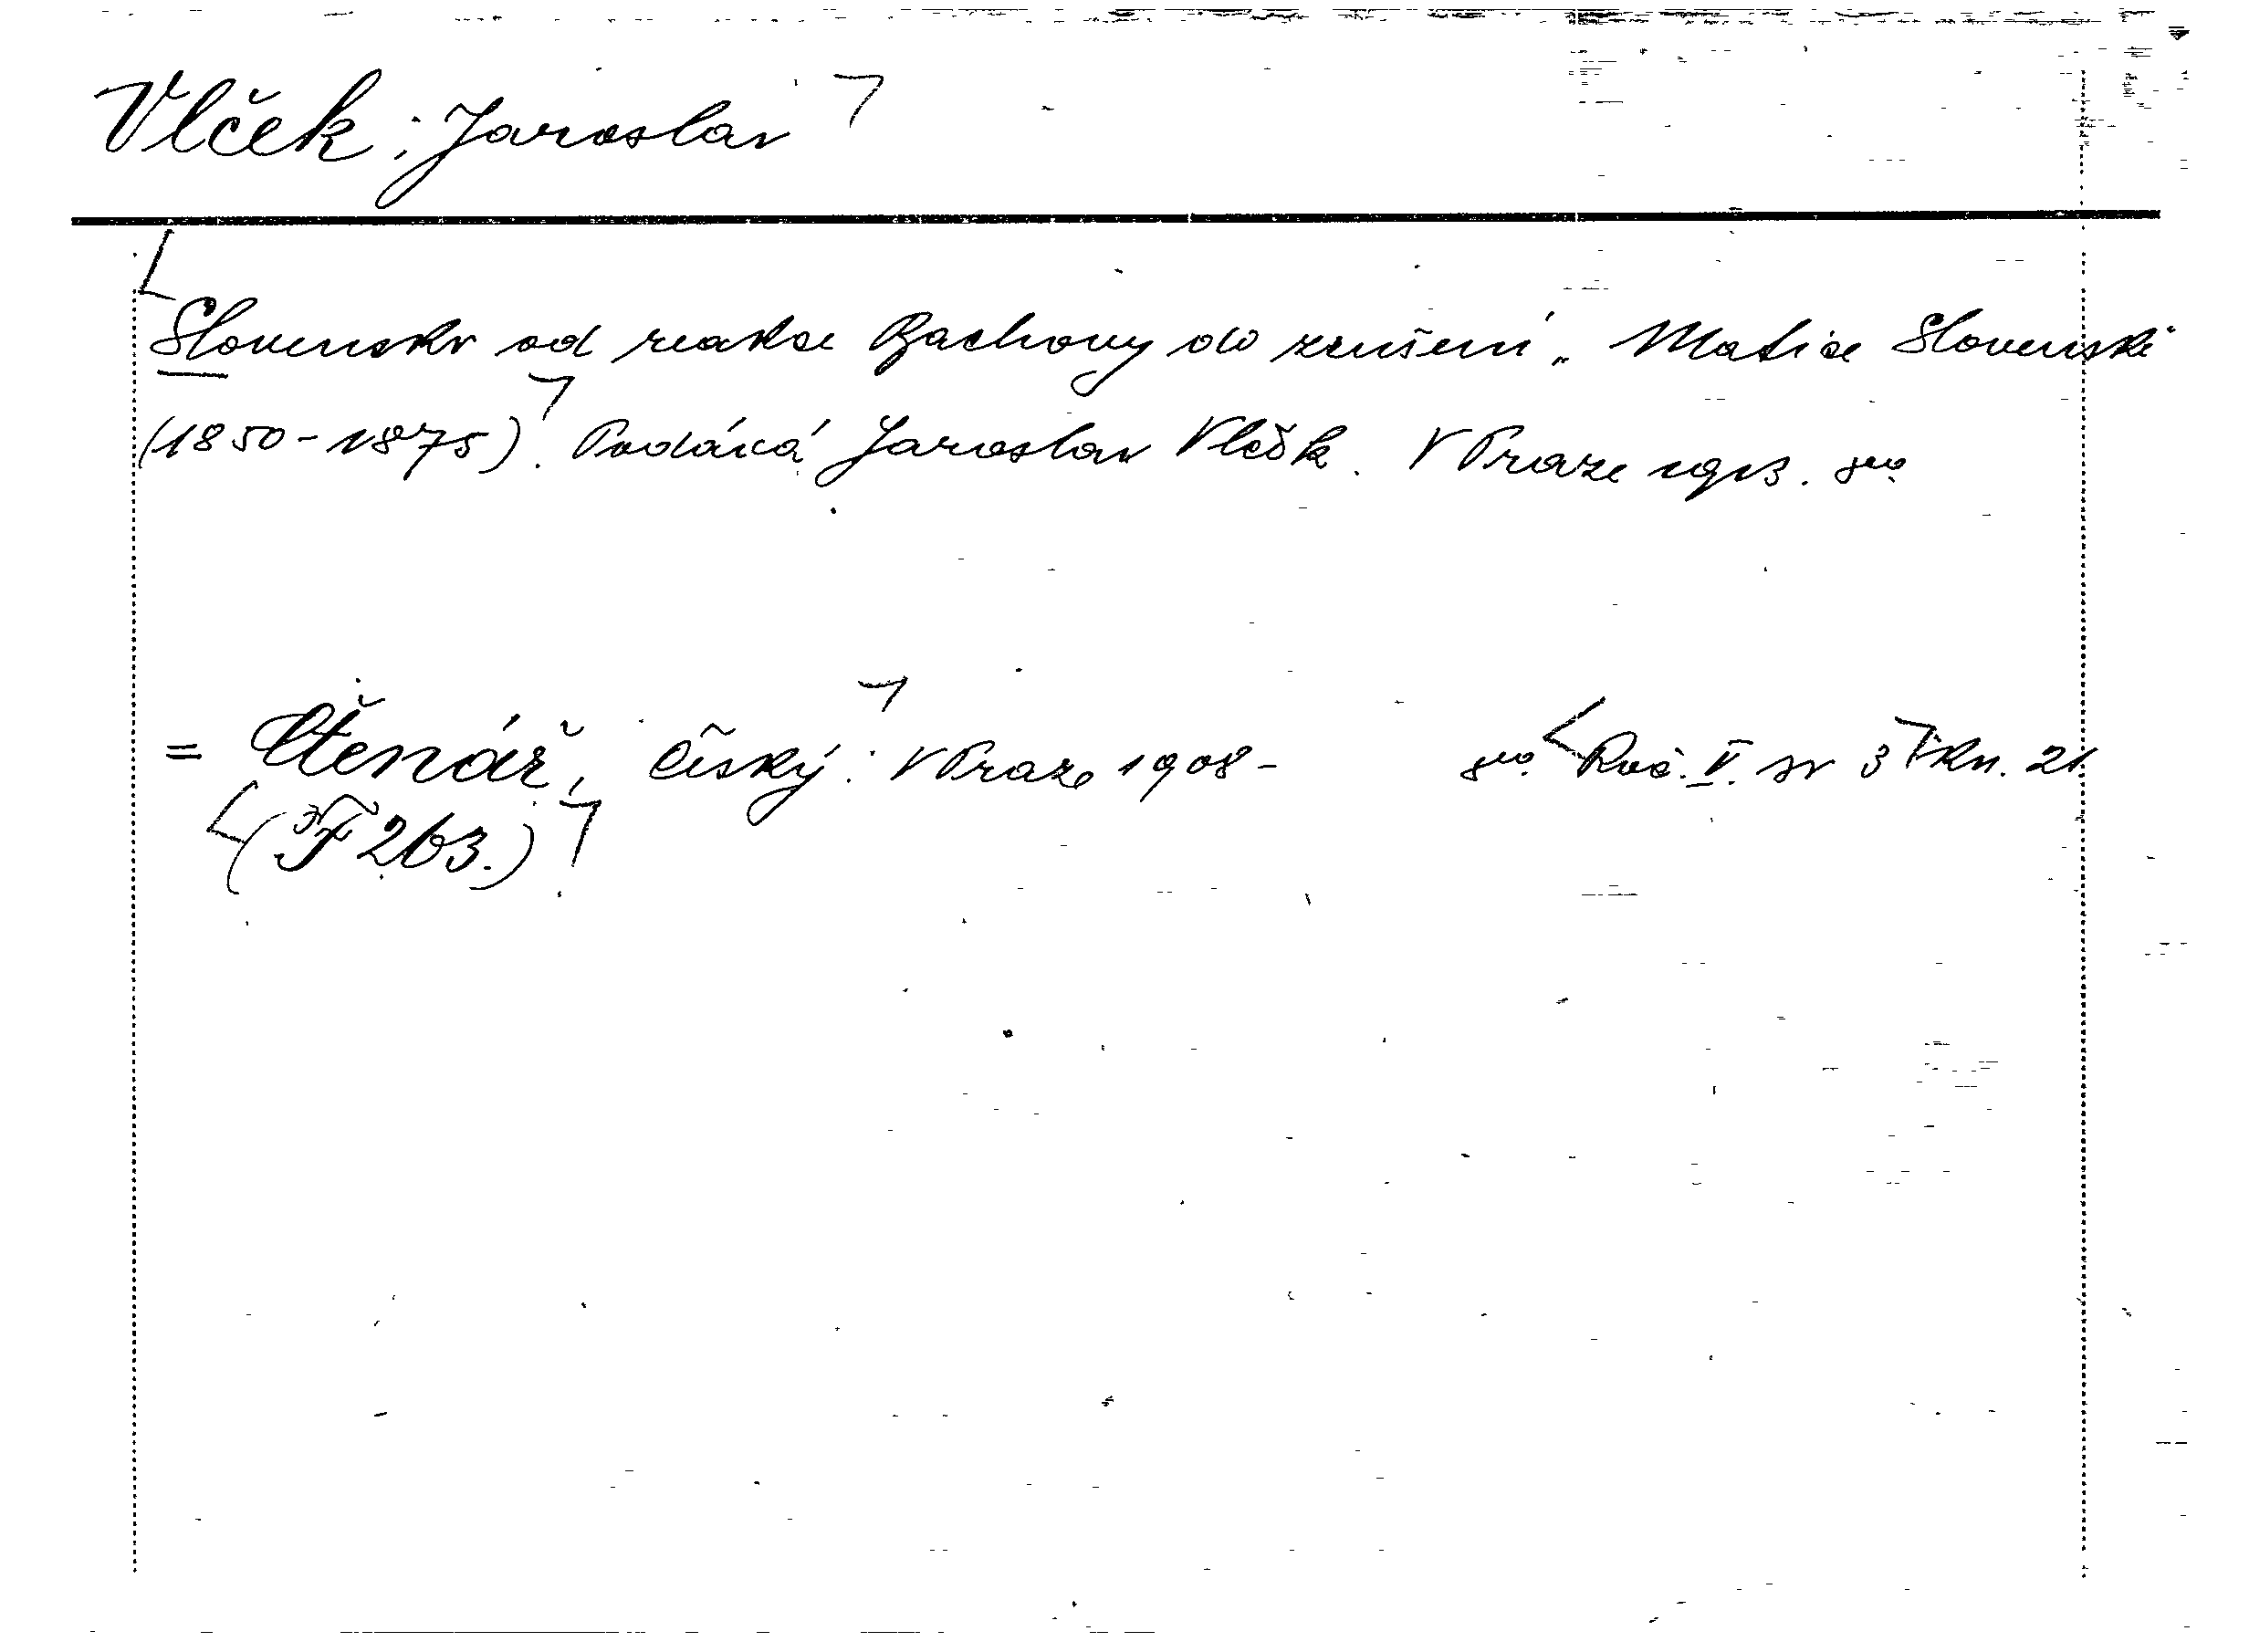 Vlček, Jaroslav
Slovensko od reakce Bachovy do zrušení „Matice Slovenské
(1850-1875). Podává Jaroslav Vlček. V Praze 1913. 8vo.
= Čtenář, Český. V Praze 1908- 8vo. Roč. V. sv 3 Kn. 21.
(3F 263.)